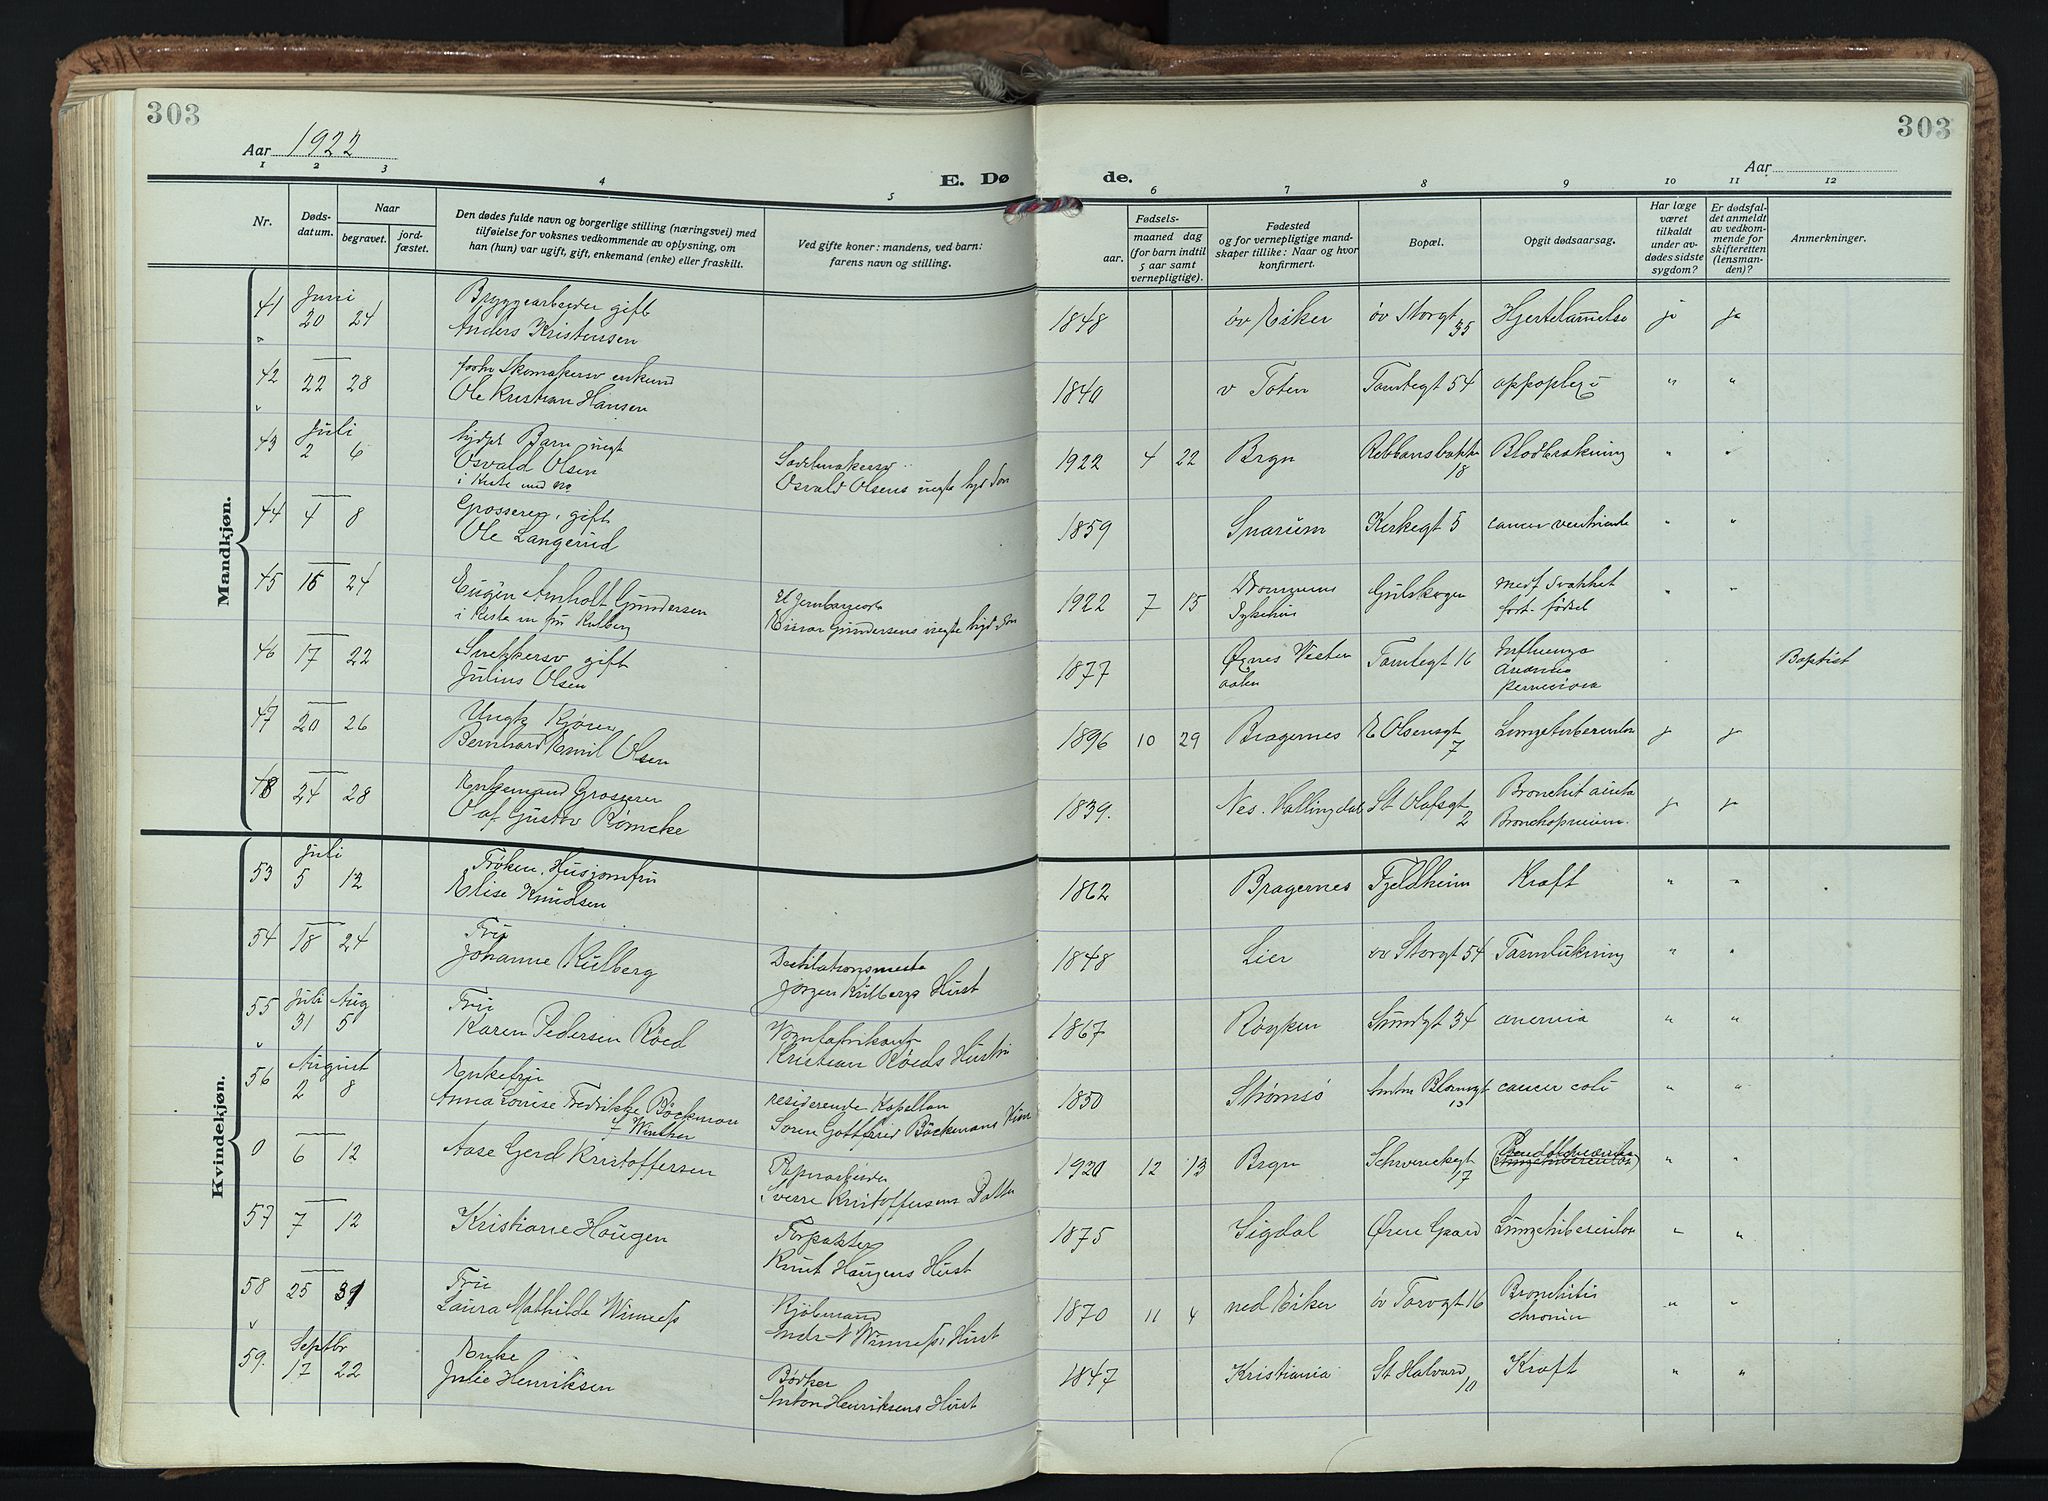 303
303
Aar 1922
Aar
1 2 3 4 5 6 7 8 9 10 11 12
E. Dø de.
Nr.
Døds-
datum.
Naar
begravet.
jord-
fæstet.
Den dødes fulde navn og borgerlige stilling (næringsvei) med
tilføielse for voksnes vedkommende av oplysning, om
han (hun) var ugift, gift, enkemand (enke) eller fraskilt.
Ved gifte koner: mandens, ved barn:
farens navn og stilling.
Fødsels-
aar.
maaned dag
(for barn indtil
5 aar samt
vernepligtige).
Fødested
og for vernepligtige mand-
skaper tillike: Naar og hvor
konfirmert.
Bopæl.
Opgit dødsaarsag.
Har læge
været
tilkaldt
under av-
dødes sidste
sygdom?
Er dødsfal-
det anmeldt
av vedkom-
mende for
skifteretten
(lensman-
den)?
Anmerkninger.
Mandkjøn.
41 Juni
20 24 Bryggearbeider gift
Anders Kristensen
1848 øv Eiker øv Storgt 35 Hjertelammelse ja ja
42 22 28 Skomakersv enkemd
Ole Kristian Hansen
1840 v Toten Tomtegt 54 " "
43 Juli
2 6 Barn uegt
Osvald Olsen
i Kiste med
Sadelmakersv
Osvald Olsens uegte
1922 4 22 Brgn 18 Blodbrækning " "
44 4 8 Grosserer, gift
Ole Langerud
1859 Snarum Kirkegt 5 cancer ventricule " "
45 15 24 Eugen Arnholt Gundersen
i Kiste m fru Kulberg
Einar Gundersens uegte
1922 7 15 Drammens
Sykehus
Gulskogen medf svakhet
fort. fødsel " "
46 17 22 Snekkersv gift
Julius Olsen
1877 Øxnes Vester
aalen
Tomtegt 16 Influenza
Anæmia
perniciosa
Baptist
47 20 26 Ungk Kjører
Bernhard Emil Olsen
1896 10 29 Bragernes E Olsensgt 7 Lungetuberculose j j
48 24 28 Enkemand Grosserer
Olaf Gustav Rømcke
1839. Nes. Hallingdal St Olafsgt 2 Bronchit acuta
Bronchopneum. j j
Kvindekjøn.
53 Juli
5 12 Frøken. Husjomfru
Elise Knudsen
1862 Bragernes Fjeldheim Kræft " "
54 18 24 Fru
Johanne Kulberg
Destilationsmester
Jørgen Kulbergs Hust
1848 Lier øv Storgt 54 Tarmlukning " "
55 Juli Aug
31 5 Fru
Karen Pedersen Röed
Vognfabrikant
Kristian Röeds Hustru
1867 Røyken Sundgt 34 anemia " "
56 August
2 8 Enkefru
Anna Louise Fredrikke Böckman
f Winther
residerende Kapellan
Søren Gottfried Böckmans
1850 Strømsø Blomsgt 13 cancer coli " "
0 6 12 Aase Gerd Kristoffersen
Papirarbeider
Sverre Kristoffersens Datter
1920 12 13 Brgn Schwenckegt 17 " "
57 7 12 Kristiane Haugen
Forpakter
Knut Haugens Hust
1875 Sigdal Øren Gaard Lungetuberculose " "
58 25 31 Fru
Laura Mathilde Winness
Kjøbmand
Andr N Winness Hust
1870 11 4 ned Eiker öv Torvgt 16 Bronchitis
chronica " "
59. Septbr
17 22 Enke
Julie Henriksen
Bødker
Anton Henriksens Hust
1847 Kristiania St Halvard 10 Kræft " "